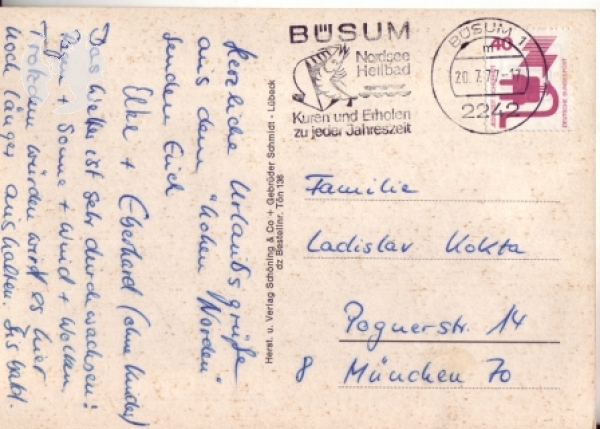 Herzliche Urlaubsgrüße
aus dem "hohen Norden"
senden Euch
Elke + Eberhard (ohne Kinder)
Das Wetter ist sehr durchwachsen:
Regen + Sonne + Wind + Wolken.
Trotzdem würden wir es hier
noch länger aushalten. Bis bald.
Herst. u. Verlag Schöning & Co + Gebrüder Schmidt - Lübeck
dz Bestellnr. Tön 136
BÜSUM
Nordsee
Heilbad
Kuren und Erholen
zu jeder Jahreszeit
BÜSUM 1
m
20.7.77-17
2242
40
DEUTSCHE BUNDESPOST
Familie
Ladislav Kokta
Pognerstr. 14
8 München 70